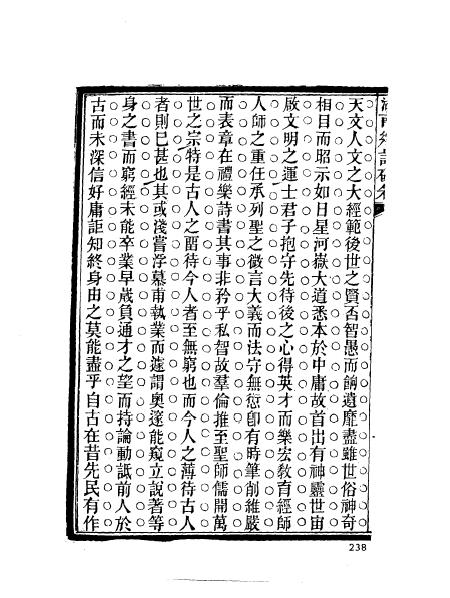 天文人文之大經範後世之賢否智愚而餉遺靡盡雖世俗神奇
相目而昭示如日星河嶽大道悉本於中庸故首出有神靈世宙
啟文明之運士君子抱守先待後之心得英才而樂宏敎育經師
人師之重任承列聖之微言大義而法守無愆卽有時筆削維嚴
而表章在禮樂詩書其事非矜乎私智故羣倫推至聖師儒開萬
世之宗特是古人之所待今人者至無窮也而今人之薄待古人
者則已甚也其或淺嘗浮慕甫執業而遽謂奧邃能窺立說著等
身之書而窮經未能卒業早歲負通才之望而持論動詆前人於
古而未深信好庸詎知終身由之莫能盡乎自古在昔先民有作
238